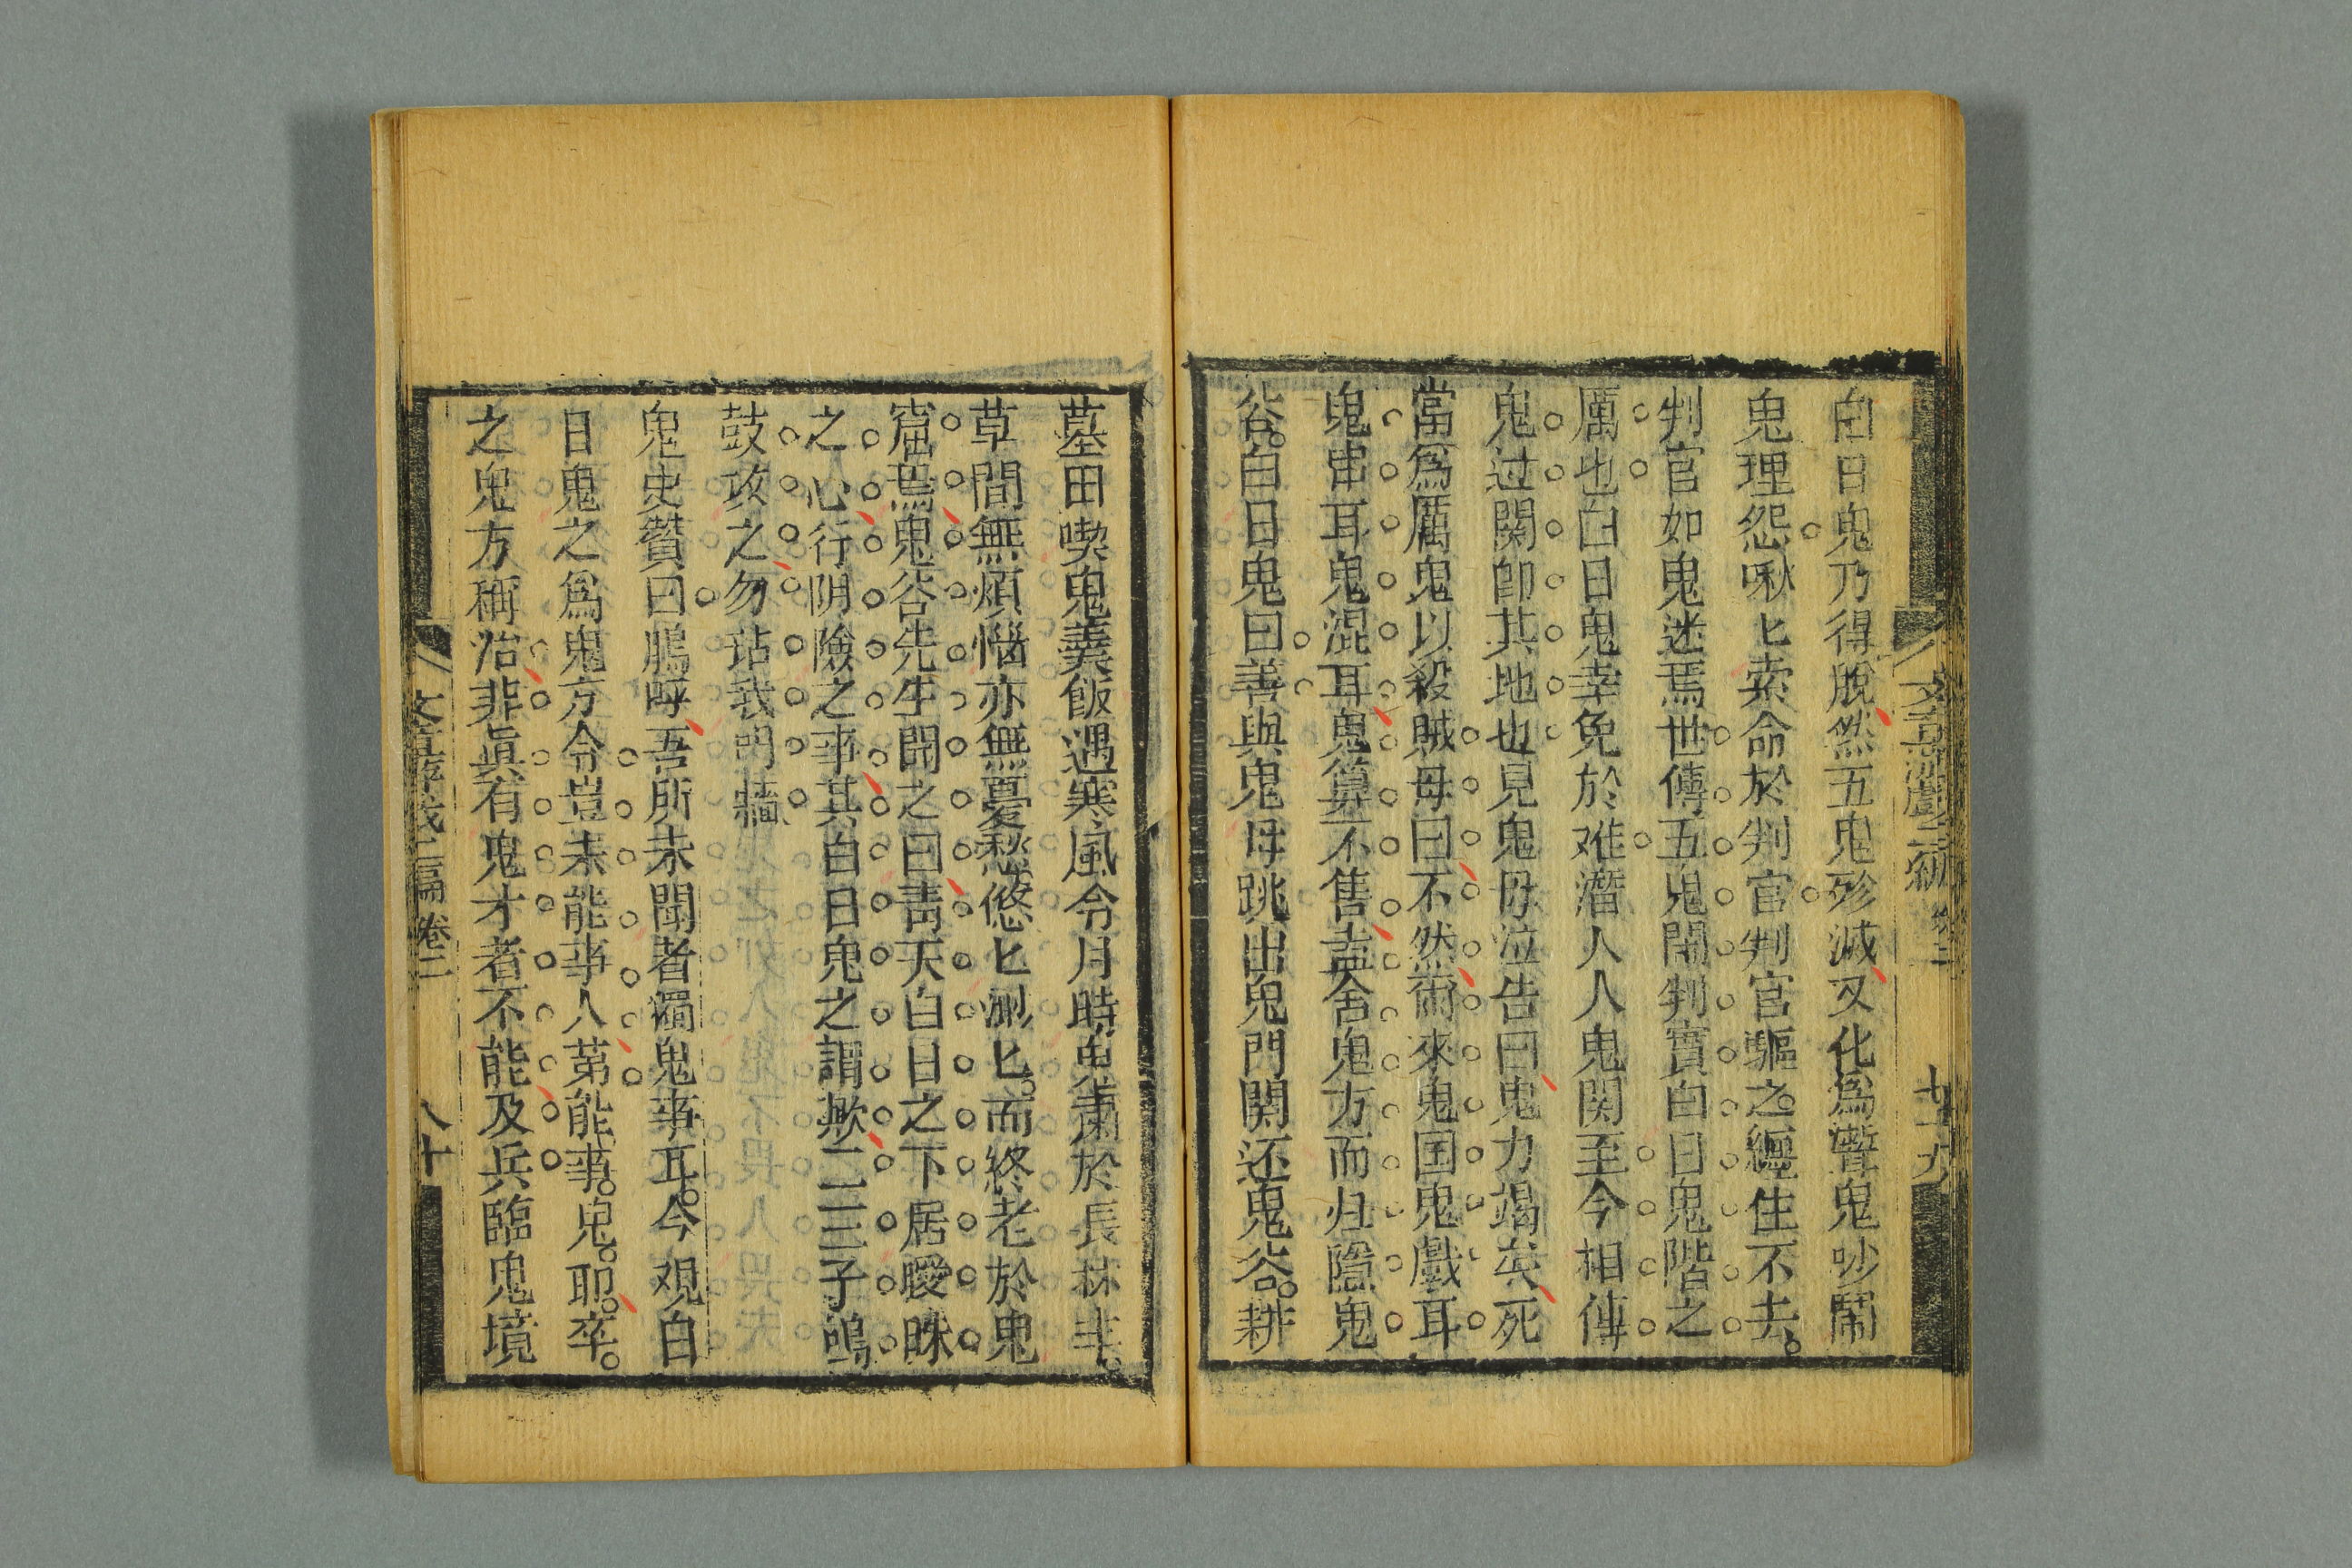 白日鬼乃得脫然五鬼殄滅又化爲聻鬼吵鬧
鬼理怨啾匕索命於判官判官驅之纒住不去
判官如鬼迷焉世傳五鬼鬧判實白日鬼階之
厲也白日鬼幸免於难潛人人鬼関至今相傳
鬼过関卽其地也見鬼母泣告曰鬼力竭矣死
當爲厲鬼以殺賊母曰不然術來鬼国鬼戲耳
鬼串耳鬼混耳鬼算不售盍舍鬼方而归隐鬼
谷白日鬼曰善與鬼母跳出鬼門関还鬼谷耕
墓田喫鬼羹飯遇寒風令月時鬼嘯於長林丰
草間無煩惱亦無憂愁悠匕颲匕而終老於鬼
窟焉鬼谷先生聞之曰靑天白日之下居曖昧
之心行阴險之事其白日鬼之謂歟二三子鳴
鼓攻之勿玷我門牆
鬼史贊曰嗚呼吾所未聞者獨鬼事耳今观白
日鬼之爲鬼方今豈未能事人苐能事鬼耶卒
之鬼方稱治非眞有鬼才者不能及兵臨鬼境
文章游戲二編 卷二 七十九
文章游戲二編 卷二 八十